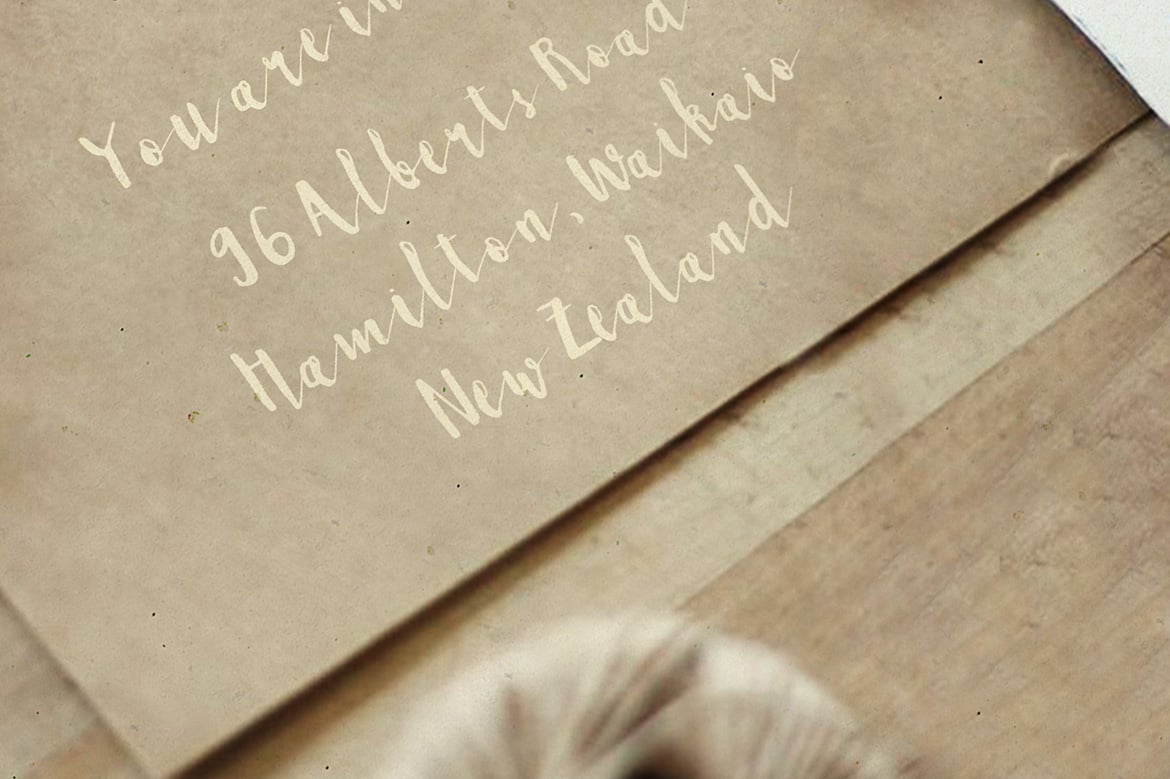 You are in
96 Alberts Road
Hamilton, Waikaio
New Zealand